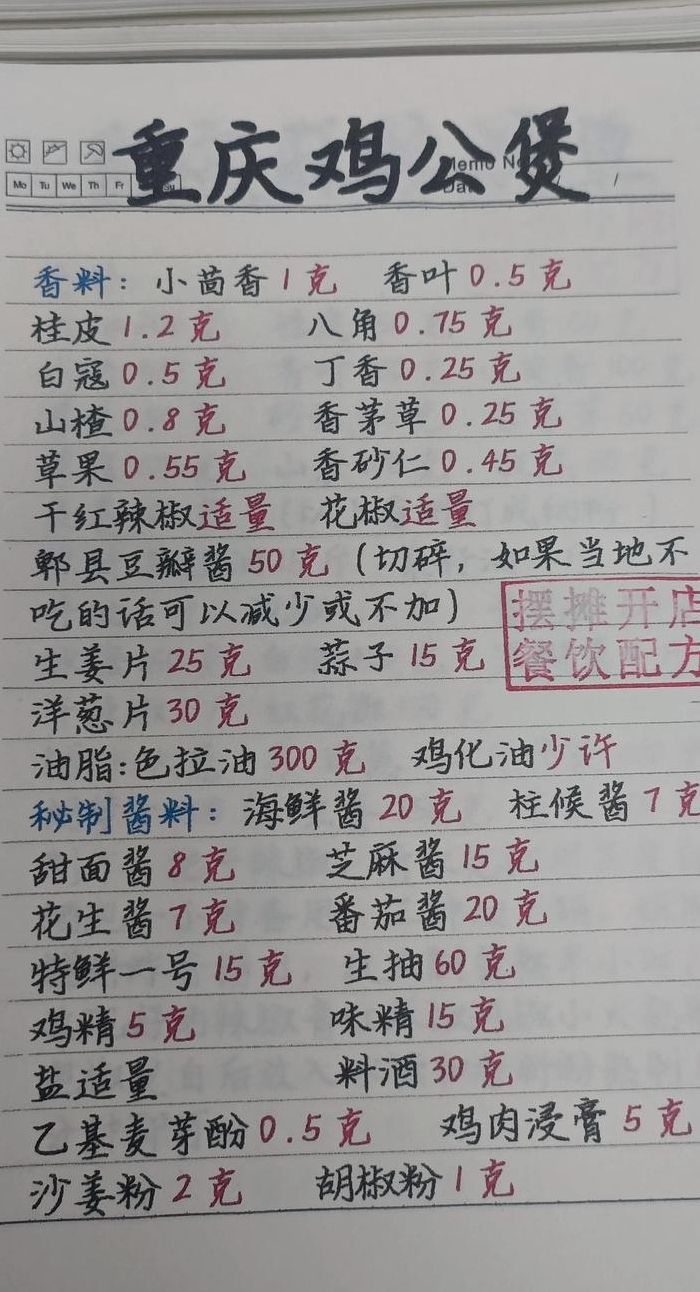 重庆鸡公煲
Memo No.
Mo Tu We Th Fr
香料：小茴香1克 香叶0.5克
桂皮1.2克 八角0.75克
白寇0.5克 丁香0.25克
山楂0.8克 香茅草0.25克
草果0.55克 香砂仁0.45克
干红辣椒适量 花椒适量
郫县豆瓣酱50克（切碎，如果当地不
吃的话可以减少或不加）
摆摊开店
餐饮配方
生姜片25克 蒜子15克
洋葱片30克
油脂:色拉油300克 鸡化油少许
秘制酱料：海鲜酱20克 柱候酱7克
甜面酱8克 芝麻酱15克
花生酱7克 番茄酱20克
特鲜一号15克 生抽60克
鸡精5克 味精15克
盐适量 料酒30克
乙基麦芽酚0.5克 鸡肉浸膏5克
沙姜粉2克 胡椒粉1克